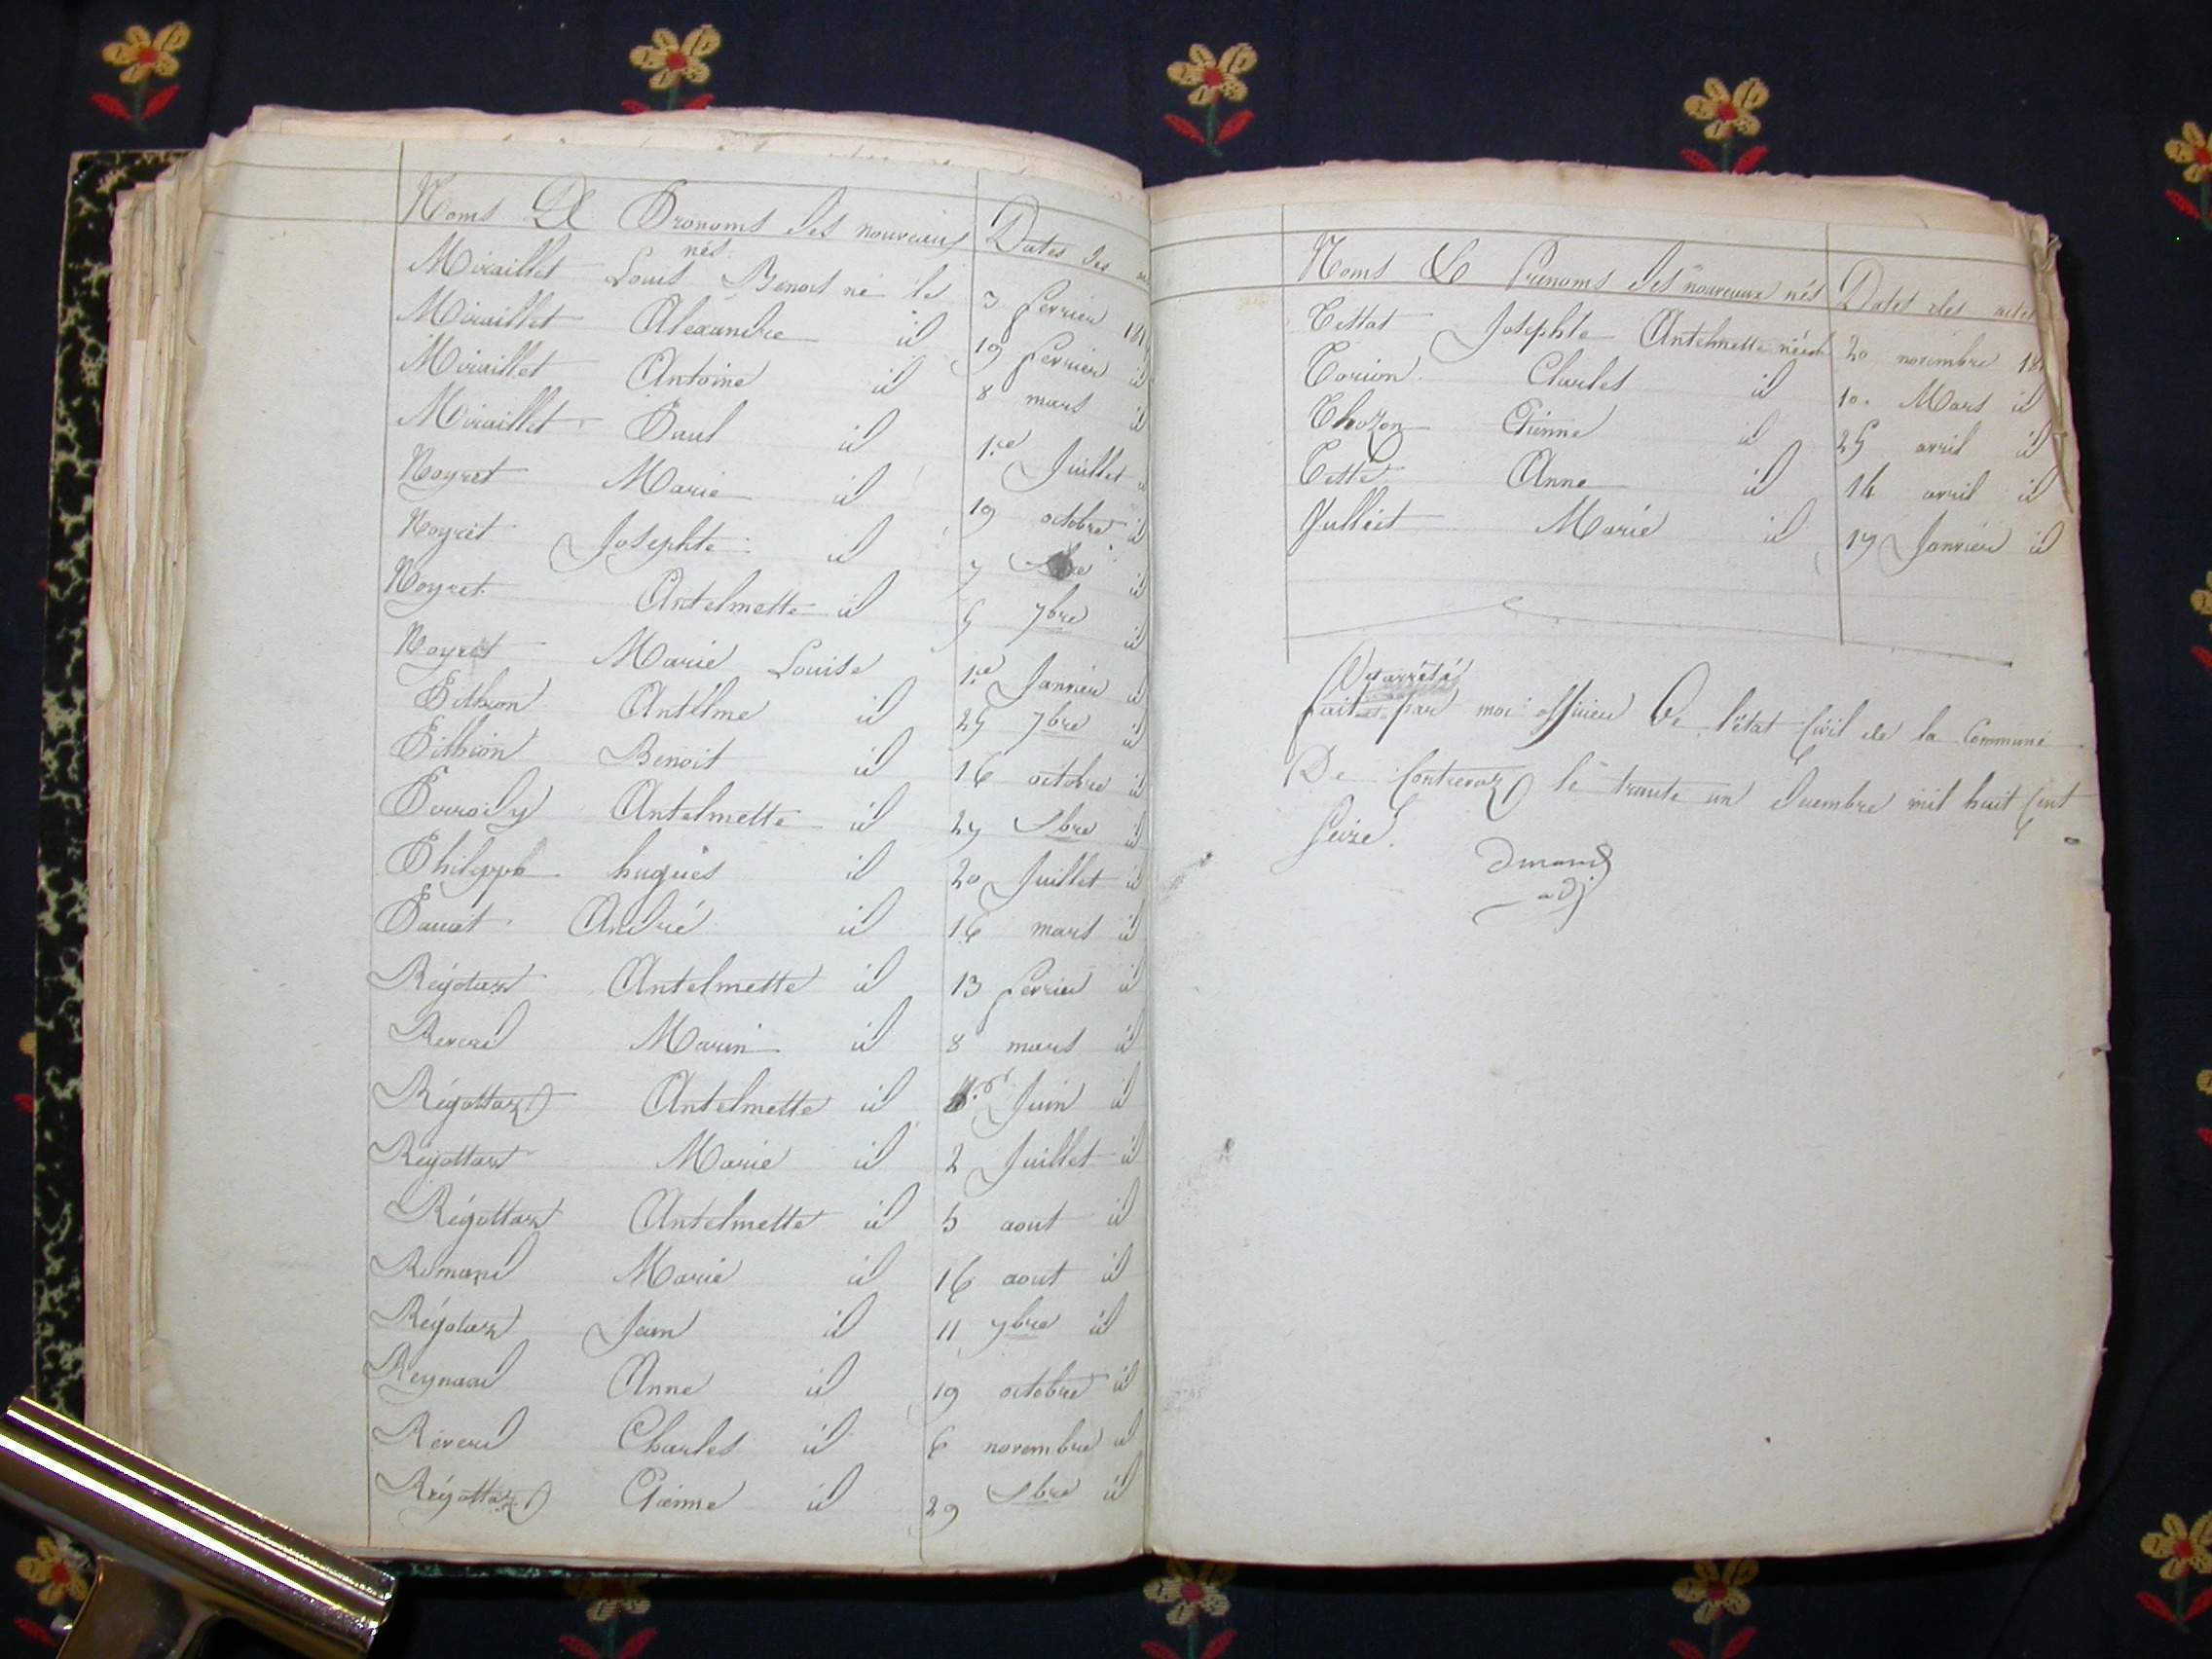 Noms Et Pronoms des nouveaux nés Dates des
Miraillet Louis Benoit né le 3 fevrier 181
Miraillet Alexandre id 19 fevrier id
Miraillet Antoine id 8 mars id
Miraillet Paul id 1.er Juillet
Noyret Marie id 19 octobre id
Noyret Josephte id 7 id
Noyret Antelmette id 5 7bre id
Noyret Marie Louise 1.er Janvier id
Pithion Antelme id 25 7bre id
Pithion Benoit id 16 octobre id
Antelmette id 27 id
Philippe hugues id 20 Juillet id
André id 16 mars id
Régotaz Antelmette id 13 fevrier id
Reverd Marin id 8 mars id
Régottaz Antelmette id Juin id
Régottaz Marie id 2 Juillet id
Régottaz Antelmette id 5 aout id
Romand Marie id 16 aout id
Régotaz Jean id 11 7bre id
Reynaud Anne id 19 octobre id
Reverd Charles id 6 novembre id
Régottaz Etienne id 29 id
Noms Et Prenoms des nouveaux nés Dates des actes
Tettat Josephte Antelmette née le 20 novembre 181
Charles id 10 Mars id
Etienne id 25 avril id
Anne id 14 avril id
Julliet Marie id 19 Janvier id
et arrêté
fait par moi officier De l'état Civil de la Commune
De Contrevoz le trante un decembre mil huit Cent
Seize.
Durand
adj